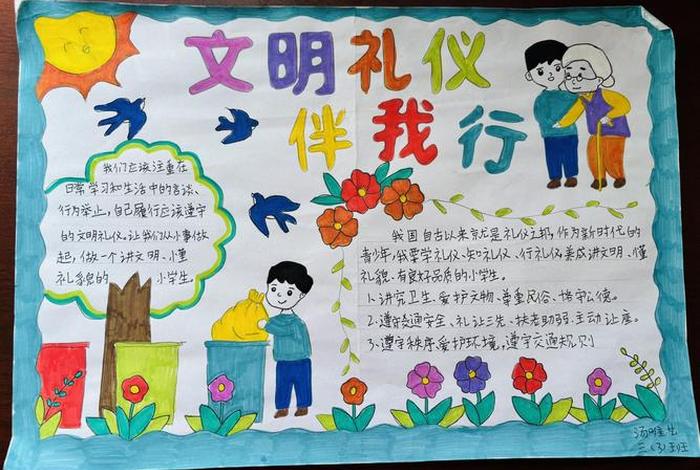 文明礼仪
伴我行
我们应该注重在
日常学习和生活中的言谈、
行为举止,自己履行应该遵守
的文明礼仪。让我们从小事做
起,做一个讲文明、小懂
礼貌的 小学生。
我国自古以来就是礼仪之邦,作为新时代的
青少年,我要学礼仪、知礼仪、行礼仪,养成讲文明、懂
礼貌、有良好品质的小学生。
1.讲究卫生、爱护文物、尊重民俗、恪守公德。
2.遵守交通安全、礼让三先、扶老助弱、主动让座。
3.遵守秩序、爱护环境,遵守交通规则
汤 生
三.(3)班